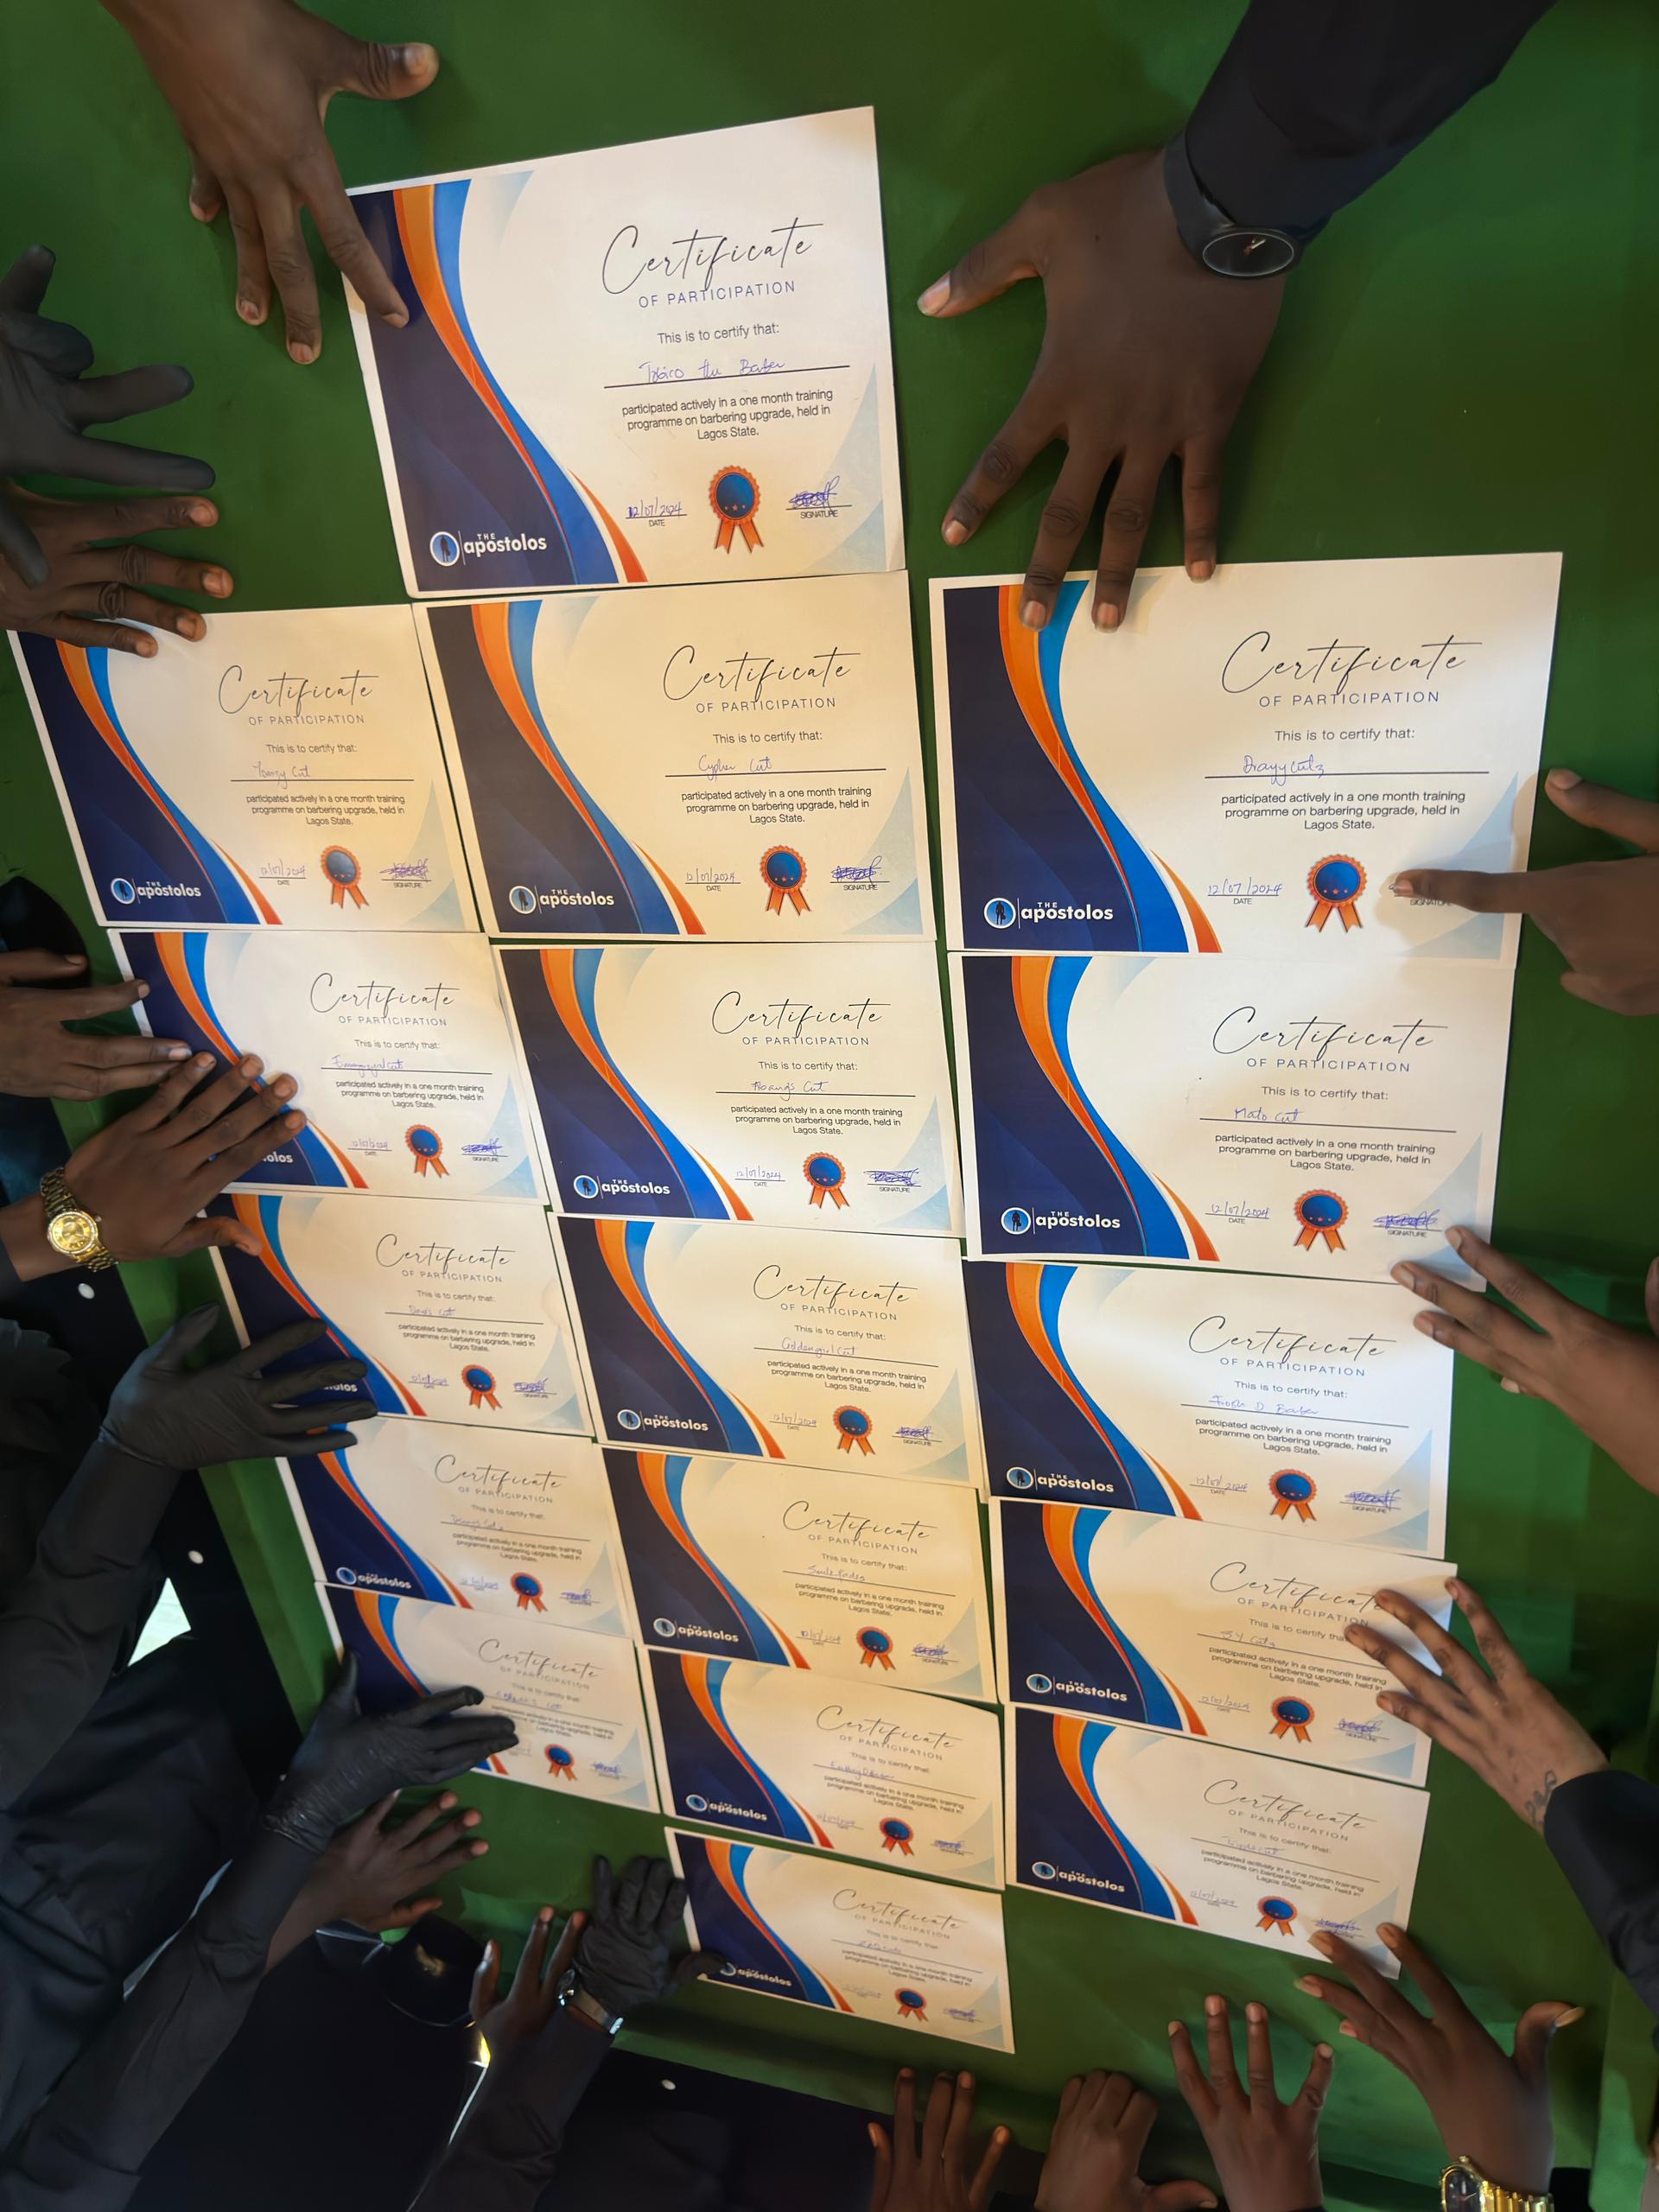 Certificate
OF PARTICIPATION
This is to certify that:
the
participated actively in a one month training
programme on barbering upgrade, held in
Lagos State.
12/07/2024
DATE
SIGNATURE
THE
apostolos
Certificate
OF PARTICIPATION
This is to certify that:
Cut
participated actively in a one month training
programme on barbering upgrade, held in
Lagos State.
12/07/2024
DATE
SIGNATURE
THE
apostolos
Certificate
OF PARTICIPATION
This is to certify that:
Cypher Cut
participated actively in a one month training
programme on barbering upgrade, held in
Lagos State.
12/07/2024
DATE
SIGNATURE
THE
apostolos
Certificate
OF PARTICIPATION
This is to certify that:
Brayycutz
participated actively in a one month training
programme on barbering upgrade, held in
Lagos State.
12/07/2024
DATE
THE
apostolos
Certificate
OF PARTICIPATION
This is to certify that:
participated actively in a one month training
programme on barbering upgrade, held in
Lagos State.
12/07/2024
DATE
SIGNATURE
olos
Certificate
OF PARTICIPATION
This is to certify that:
Cut
participated actively in a one month training
programme on barbering upgrade, held in
Lagos State.
12/07/2024
DATE
SIGNATURE
THE
apostolos
Certificate
OF PARTICIPATION
This is to certify that:
Malo Cut
participated actively in a one month training
programme on barbering upgrade, held in
Lagos State.
12/07/2024
DATE
SIGNATURE
THE
apostolos
Certificate
OF PARTICIPATION
This is to certify that:
Cut
participated actively in a one month training
programme on barbering upgrade, held in
Lagos State.
DATE
SIGNATURE
olos
Certificate
OF PARTICIPATION
This is to certify that:
Goldengirl Cut
participated actively in a one month training
programme on barbering upgrade, held in
Lagos State.
12/07/2024
DATE
SIGNATURE
THE
apostolos
Certificate
OF PARTICIPATION
This is to certify that:
D
participated actively in a one month training
programme on barbering upgrade, held in
Lagos State.
12/07/2024
DATE
SIGNATURE
THE
apostolos
Certificate
OF PARTICIPATION
This is to certify that:
participated actively in a one month training
programme on barbering upgrade, held in
Lagos State.
THE
apostolos
Certificate
OF PARTICIPATION
This is to certify that:
Smile fades
participated actively in a one month training
programme on barbering upgrade, held in
Lagos State.
DATE
SIGNATURE
THE
apostolos
Certificate
OF PARTICIPATION
This is to certify that:
participated actively in a one month training
programme on barbering upgrade, held in
Lagos State.
12/07/2024
DATE
SIGNATURE
THE
apostolos
Certificate
OF PARTICIPATION
This is to certify that:
Certificate
OF PARTICIPATION
This is to certify that:
participated actively in a one month training
programme on barbering upgrade, held in
Lagos State.
THE
apostolos
Certificate
OF PARTICIPATION
This is to certify that:
participated actively in a one month training
programme on barbering upgrade, held in
Lagos State.
DATE
THE
apostolos
Certificate
OF PARTICIPATION
This is to certify that:
participated actively in a one month training
programme on barbering upgrade, held in
Lagos State.
apostolos